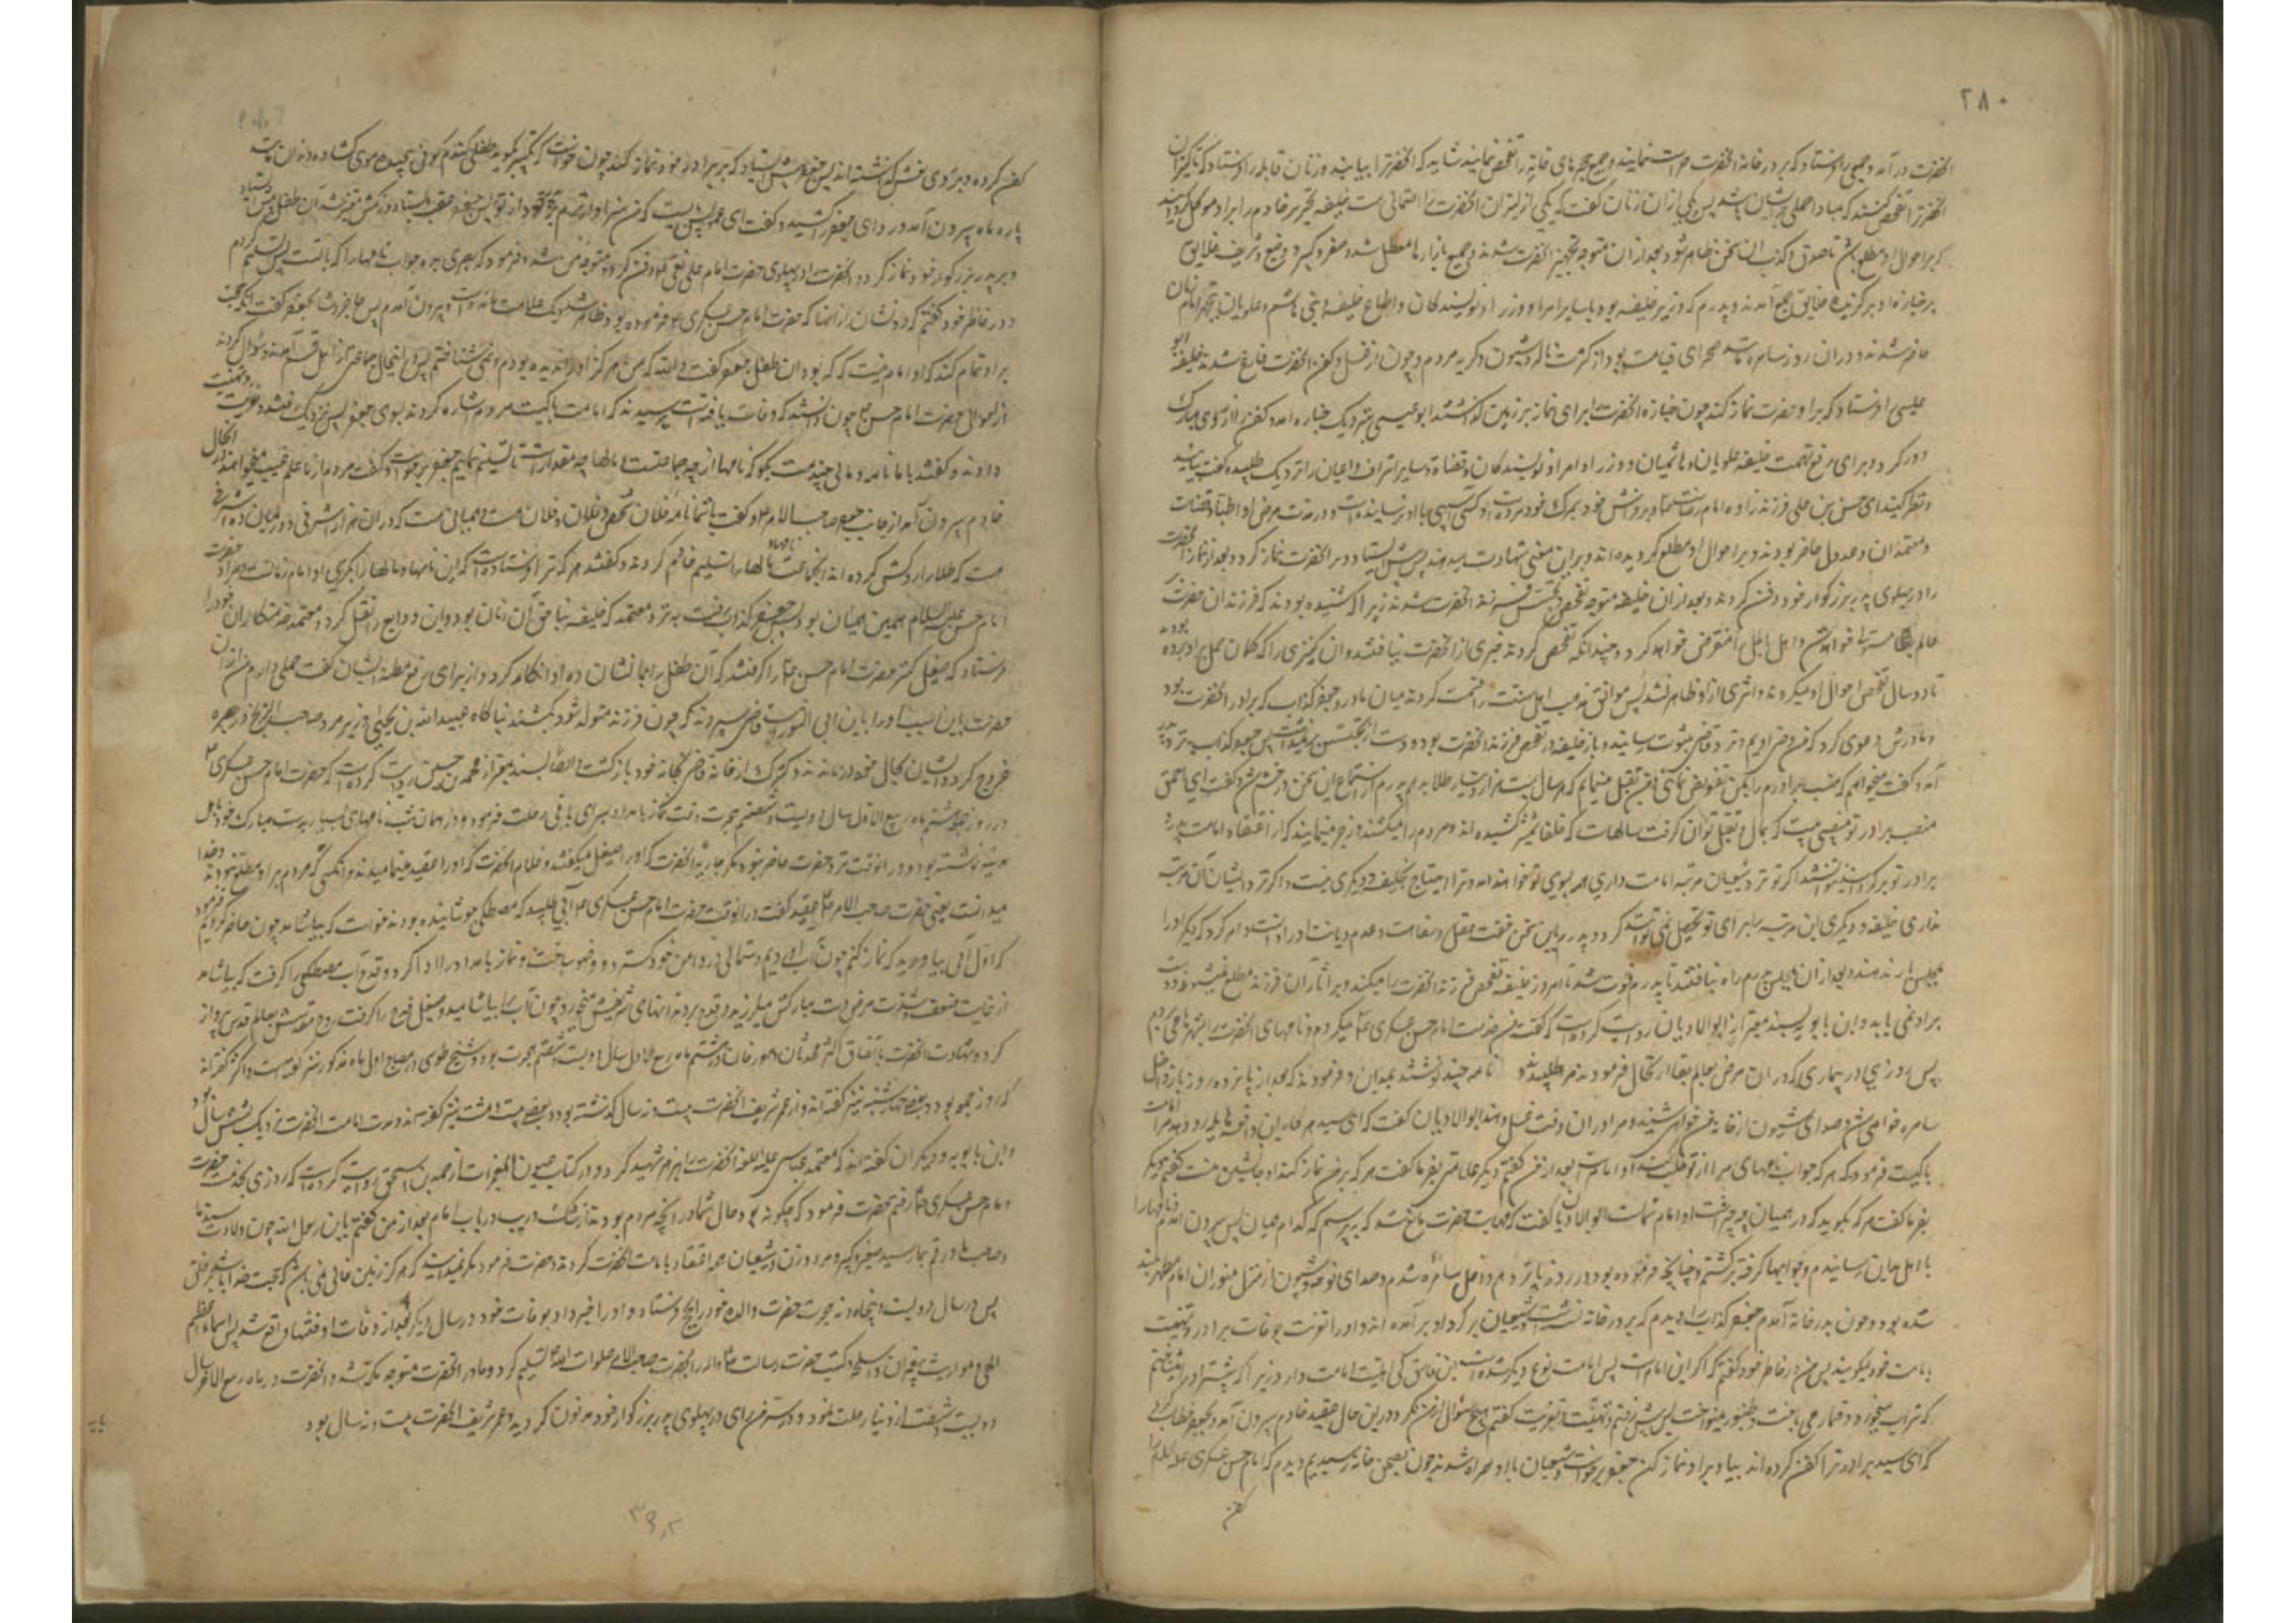 ۲۸۰
آنحضرت درآمد و جمعی را فرستاد که بر در خانهٔ آنحضرت حراست نمایند و جمیع حجره‌های خانه را تفحص نمایند شاید که آنحضرت را بیابند و زنان قابله را فرستاد که کنیزان
آنحضرت را تفحص کنند که مبادا حملی در ایشان باشد پس یکی از آن زنان گفت که یکی از کنیزان آنحضرت را احتمالی هست خلیفه نحریر خادم را بر او موکل گردانید
که بر احوال او مطلع باشد تا صدق و کذب آن سخن ظاهر شود بعد از آن متوجه تجهیز آنحضرت شدند و جمیع بازارها معطل شد و صغیر و کبیر و وضیع و شریف خلایق
بر جنازه آن برگزیدهٔ خالق جمع آمدند و پدرم که وزیر خلیفه بود با سایر امرا و وزرا و نویسندگان و اتباع خلیفه و بنی هاشم و علویان به تجهیز آن امام زمان
حاضر شدند و در آن روز سامره مانند صحرای قیامت بود از کثرت ناله و شیون و گریه مردم و چون از غسل و کفن آنحضرت فارغ شدند خلیفه ابو
عیسی را فرستاد که بر آن حضرت نماز کند چون جنازه آنحضرت را برای نماز بر زمین گذاشتند ابوعیسی بنزدیک جنازه آمد و کفن را از روی مبارک
دور کرد و برای رفع تهمت خلیفه علویان و هاشمیان و وزرا و امرا و نویسندگان و قضاة و سایر اشراف و اعیان را نزدیک طلبید و گفت بیایید
و نظر کنید که این حسن بن علی فرزندزاده امام رضاست که بر فراش خود بمرگ خود مرده است و کسی آسیبی باو نرسانیده است و در مدت مرض او اطبا و قضات
و معتمدان و عدول حاضر بودند و بر احوال او مطلع گردیده‌اند و بر این معنی شهادت میدهند پس پیش ایستاد و بر آنحضرت نماز کرد و بعد از نماز آنحضرت
را در پهلوی پدر بزرگوار خود دفن کردند و بعد از آن خلیفه متوجه تفحص و تجسس فرزند آنحضرت شد زیرا که شنیده بودند که فرزند آن حضرت
بر عالم مستولی خواهد شد و اهل باطل را منقرض خواهد کرد و چندانکه تفحص کردند خبری از آنحضرت نیافتند و آن کنیزی را که گمان حمل باو برده بودند
تا دو سال تفحص احوال او میکردند و اثری از او ظاهر نشد پس موافق مذهب اهل سنت میراث را قسمت کردند میان مادر و جعفر کذاب که برادر آنحضرت بود
و مادرش دعوی کرد که من وصی اویم و نزد قاضی بثبوت رسانید و باز خلیفه در تفحص فرزند آنحضرت بود و دست از تجسس برنمیداشت پس جعفر کذاب نزد پدرم
آمد و گفت میخواهم که منصب برادرم را بمن تفویض نمائی و من تقبل مینمایم که هر سال بیست هزار دینار طلا بدهم پدرم از استماع این سخن در خشم شد و گفت ای احمق
منصب برادر تو منصبی نیست که بمال و تقبل توان گرفت سالهاست که خلفا شمشیر کشیده‌اند و مردم را میکشند و زجر مینمایند که از اعتقاد امامت پدر و
برادر تو برگردند نتوانستند اگر تو نزد شیعیان مرتبه امامت داری همه بسوی تو خواهند آمد و ترا احتیاج بخلیفه و دیگری نیست و اگر نزد ایشان آن مرتبه
نداری خلیفه و دیگری این مرتبه را برای تو تحصیل نمی‌توانند کرد و پدرم باین سخن خفت عقل و سفاهت و عدم دیانت او را دانست و امر کرد که دیگر او را
بمجلس راه ندهند و بعد از آن بمجلس پدرم راه نیافت تا پدرم فوت شد و تا امروز خلیفه تفحص فرزند آنحضرت را میکند و بر آثار آن فرزند مطلع نمیشود و دست
بر او نمی یابد و ابن بابویه بسند معتبر از ابوالادیان روایت کرده است که گفت من خدمت امام حسن عسکری ع میکردم و نامهای آنحضرت را بشهرها می‌بردم
پس روزی در بیماری که در آن مرض بعالم بقا ارتحال فرمودند مرا طلبیدند و نامهٔ چند نوشتند بمداین و فرمودند که بعد از پانزده روز باز داخل
سامره خواهی شد و صدای شیون از خانه من خواهی شنید و مرا در آن وقت غسل دهند ابوالادیان گفت که ای سید هرگاه این واقعه هایله رو دهد امر امامت
با کیست فرمود که هر که جواب نامهای مرا از تو طلب کند او امام است بعد از من گفتم دیگر علامتی بفرما گفت هر که بر من نماز کند او جانشین منست گفتم دیگر
بفرما گفت هر که بگوید که در همیان چه چیز است او امام شماست ابوالادیان گفت که مهابت حضرت مانع شد که بپرسم که کدام همیان پس بیرون آمدم و نامها را
باهل مداین رسانیدم و جوابها گرفته برگشتم و چنانچه فرموده بود در روز پانزدهم داخل سامره شدم و صدای نوحه و شیون از منزل منور آن امام مطهر بلند
شده بود و چون بدر خانه آمدم جعفر کذاب را دیدم که بر در خانه نشسته است و شیعیان بر گرد او برآمده‌اند و او را تعزیت بوفات برادر و تهنیت
بامامت خود میگویند پس من در خاطر خود گفتم که اگر این امام است پس امامت نوع دیگر شده است این فاسق کی اهلیت امامت دارد زیرا که پیشتر او را میشناختم
که شراب میخورد و قمار می باخت و طنبور مینواخت پس پیش رفتم و تهنیت و تعزیت گفتم و هیچ سؤال از من نکرد در این حال عقید خادم بیرون آمد و بجعفر خطاب کرد
که ای سید برادر ترا کفن کرده‌اند بیا و بر او نماز کن جعفر برخواست و شیعیان با او همراه شدند چون بصحن خانه رسیدیم دیدم که امام حسن عسکری علیه السلام را
کفن
کفن کرده و بر روی نعش گذاشته‌اند پس جعفر پیش ایستاد که بر برادر خود نماز کند چون خواست که تکبیر بگوید طفلی گندم گون پیچیده موی گشاده دندان مانند
پاره ماه بیرون آمد و ردای جعفر را کشید و گفت ای عم پس بایست که من سزاوارترم
و بر پدر بزرگوار خود نماز کرد و آنحضرت را در پهلوی حضرت امام علی نقی ع دفن کرد و متوجه من شد و فرمود که ای بصری بده جواب نامها را که با تست پس تسلیم کردم
و در خاطر خود گفتم که دو نشان از آنها که حضرت امام حسن عسکری ع فرموده بود ظاهر شد و یک علامت مانده است و بیرون آمدم پس حاجز وشا بجعفر گفت
بر او تمام کند که او امام نیست که که بود آن طفل جعفر گفت والله که من هرگز او را ندیده بودم و نمی‌شناختم پس در اینحال جماعتی از اهل قم آمدند و سؤال کردند
از احوال حضرت امام حسن ع چون دانستند که وفات یافته است پرسیدند که امامت با کیست مردم اشاره کردند بسوی جعفر پس نزدیک رفتند و تعزیت و تهنیت
دادند و گفتند با ما نامه و مالی چند هست بگو که نامها از چه جماعتست و مالها چه مقدار است تا تسلیم نمائیم جعفر برخواست و گفت مردم از ما علم غیب میخواهند در آنحال
خادم بیرون آمد از جانب حضرت صاحب الامر ع و گفت با شما نامهٔ فلان شخص و فلان و فلان هست و همیانی هست که در آن هزار اشرفی و در میان ده اشرفی
هست که طلا را روکش کرده‌اند آنجماعت نامها و مالها را تسلیم خادم کردند و گفتند هر که ترا فرستاده است که این نامها و مالها را بگیری او امام زمانست و مراد حضرت
امام حسن علیه السلام همین همیان بود پس جعفر کذاب رفت به نزد معتمد که خلیفه بناحق آن زمان بود و این وقایع را نقل کرد و معتمد خدمتکاران خود را
فرستاد که صیقل کنیز حضرت امام حسن ع را گرفتند که آن طفل را بما نشان ده او انکار کرد و از برای رفع مظنه ایشان گفت حملی دارم من از آن
حضرت باین سبب او را بابن ابی الشوارب قاضی سپردند که چون فرزند متولد شود بکشند ناگاه عبیدالله بن یحیی وزیر مرد و صاحب الزنج در بصره
خروج کرد و ایشان بحال خود درماندند و کنیزک از خانه قاضی بخانه خود بازگشت و ایضا بسند معتبر از محمد بن حسین روایت کرده است که حضرت امام حسن عسکری ع
در روز جمعه هشتم ماه ربیع الاول سال دویست و شصتم هجرت وقت نماز بامداد بسرای باقی رحلت فرمود و در همان شب نامهای بسیار بدست مبارک خود باهل
مدینه نوشته بود و در آنوقت نزد حضرت حاضر نبود مگر جاریه آنحضرت که او را صیقل میگفتند و غلام آنحضرت که او را عقید مینامیدند و آنکسی که مردم بر او مطلع نبودند و خدا
میدانست یعنی حضرت صاحب الامر ع عقید گفت در آنوقت حضرت امام حسن عسکری ع آبی طلبید که مصطکی جوشانیده بودند خواست که بیاشامد چون حاضر کردیم فرمود
که اول آبی بیاورید که نماز کنم چون آب آوردیم دستمالی در دامن خود گسترد و وضو ساخت و نماز بامداد را ادا کرد و قدح آب مصطکی را گرفت که بیاشامد
از غایت ضعف و شدت مرض دست مبارکش میلرزید و قدح بر دندانهای شریفش میخورد چون آب را بیاشامید و صیقل قدح را گرفت روح مقدسش بعالم قدس پرواز
کرد و شهادت آنحضرت باتفاق اکثر محدثان و مورخان در هشتم ماه ربیع الاول سال دویست و شصتم هجرت بود و شیخ طوسی در مصباح اول ماه مذکور نیز گفته است و اکثر گفته‌اند
که روز جمعه بود و بعضی چهارشنبه نیز گفته‌اند و از عمر شریف آنحضرت بیست و نه سال گذشته بود و بعضی بیست و هشت نیز گفته‌اند و مدت امامت آنحضرت نزدیک بشش سال بود
و ابن بابویه و دیگران گفته‌اند که معتمد عباسی علیه اللعنه آنحضرت را بزهر شهید کرد و در کتاب عیون المعجزات از احمد بن اسحق روایت کرده است که روزی بخدمت حضرت
امام حسن عسکری ع رفتم حضرت فرمود که چگونه بود حال شما در آنچه مردم بودند از شک و ریب در باب امام بعد از من گفتم یابن رسول الله چون خبر ولادت سید ما
و صاحب ما در قم بما رسید صغیر و کبیر و مرد و زن و شیعیان همه اعتقاد بامامت آنحضرت کردند حضرت فرمود مگر نمیدانید که هرگز زمین خالی نمی باشد که حجت خدا باشد بر خلق
پس در سال دویست و پنجاه و نه هجرت حضرت والده خود را بحج فرستاد و او را خبر داد بوفات خود در سال دیگر و بعد از وفات او فتنها واقع شد پس اسماء اعظم
الهی و مواریث پیغمبران و اسلحه و کتب حضرت رسالت ص را بحضرت صاحب الامر صلوات الله علیه تسلیم کرد و مادر آنحضرت متوجه مکه شد و آنحضرت در ماه ربیع الاول سال
دویست و شصت از دنیا رحلت نمود و در سر من رای در پهلوی پدر بزرگوار خود مدفون گردید و عمر شریف آنحضرت بیست و نه سال بود